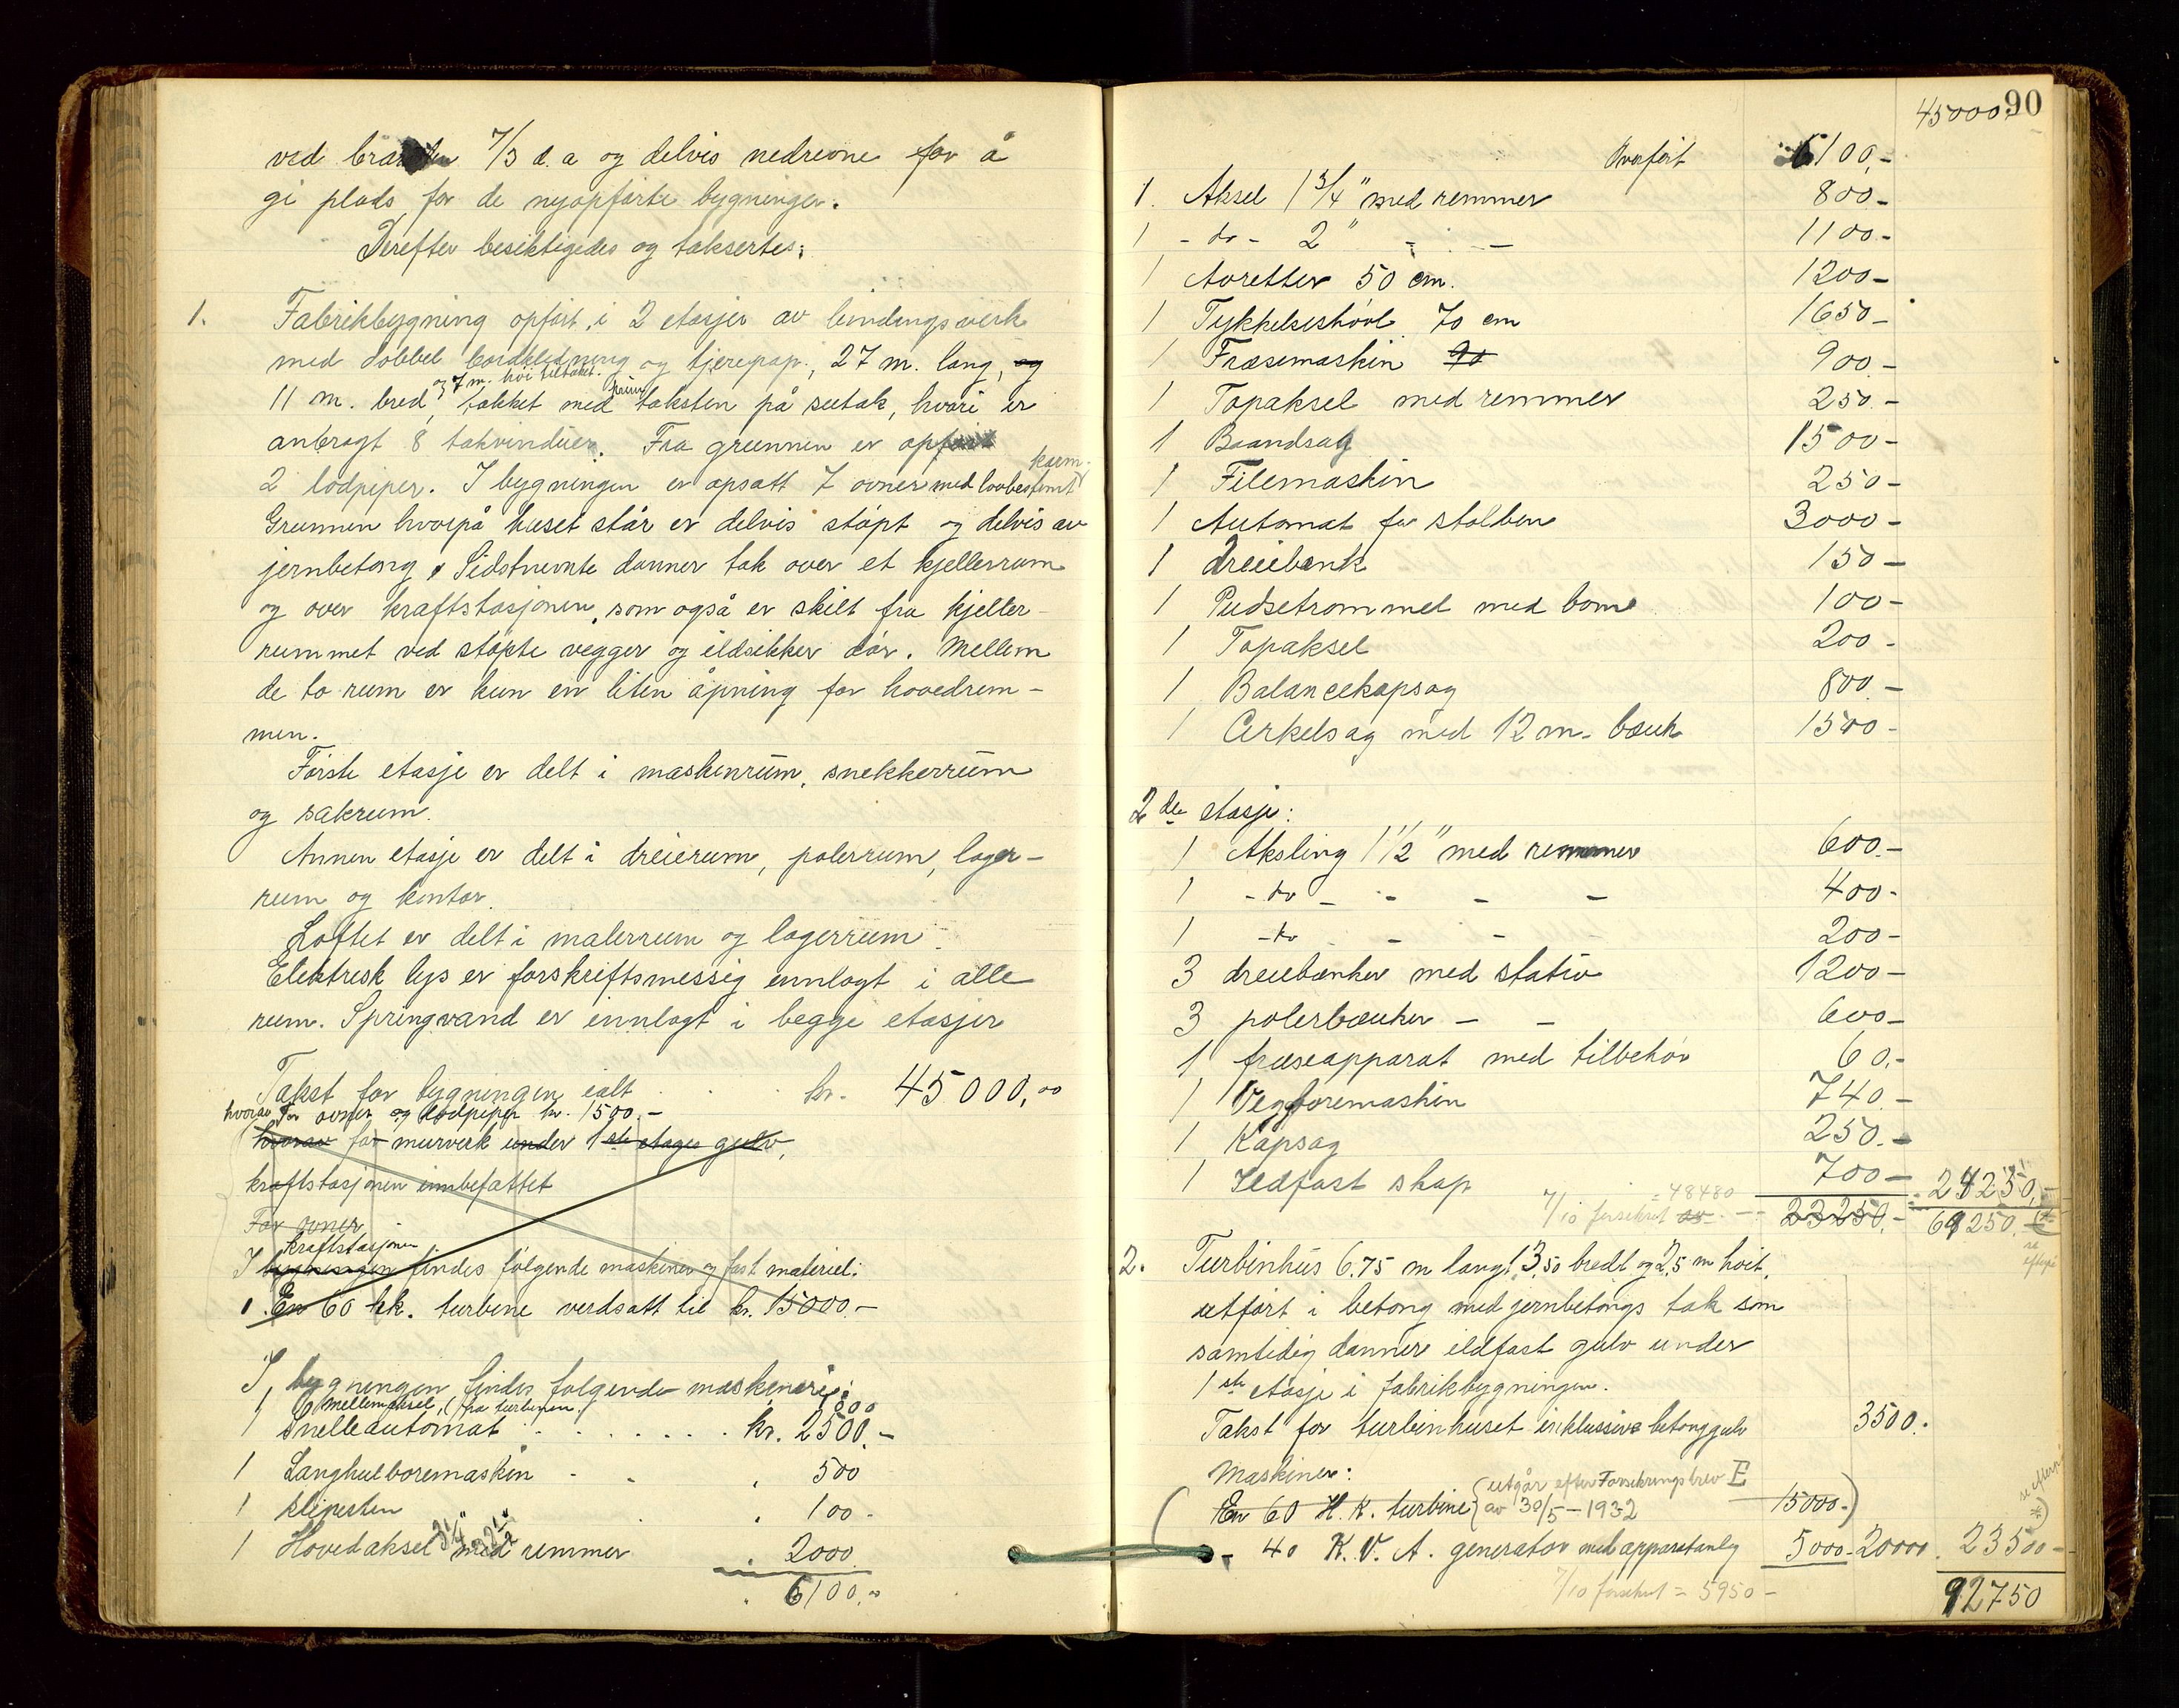 ved branden 7/3 d.a og delvis nedrevne for å
gi plads for de nyopförte bygninger.
Derefter besiktigedes og taksertes:
1. Fabrikbygning opfört i 2 etasjer av bindingsverk
med dobbel bordkledning og tjerepap, 27 m. lang, og
11 m. bred, og 7 m. höi til taket. tækket med prima taksten på sutak, hvori er
anbragt 8 takvinduer. Fra grunnen er opfört
2 lodpiper. I bygningen er opsatt 7 ovner med lovbestemt
Grunnen hvorpå huset står er delvis stöpt og delvis av
jernbetong. Sidstnevnte danner tak over et kjellerrum
og over kraftstasjonen, som også er skilt fra kjeller-
rummet ved stöpte vegger og ildsikker dör. Mellem
de to rum er kun en liten åpning for hovedrem-
men.
Förste etasje er delt i maskinrum, snekkerrum
og sakrum.
Annen etasje er delt i dreierum, polerrum, lager-
rum og kontor.
Loftet er delt i malerrum og lagerrum.
Elektrisk lys er forskriftsmessig innlagt i alle
rum. Springvand er innlagt i begge etasjer
Takst for bygningen ialt . . . kr. 45000,00
hvorav for ovner og lodpiper kr. 1500,-
hvorav for murverk under 1ste etages gulv,
kraftstasjonen innbefattet
For ovner -
I bygningen kraftstasjonen findes følgende maskiner og fast materiel:
1. En 60 hk. turbine verdsatt til kr. 15000.-
I bygningen findes følgende maskineri:
1 Mellemaksel, (fra turbinen. 1000
1 Snelleautomat . . . . . . . kr. 2500.-
1 Langhulboremaskin - - . 500
1 slipesten . . 100.-
1 Hovedaksel med remmer . 2000
6100.00
90
45000
Overfört 6100,-
1. Aksel 1 3/4" med remmer 800.-
1 - do - 2" - - 1100.-
1 Avretter 50 cm. 1200-
1 Tykkelseshövl 70 cm 1650-
1 Fræsemaskin 90 900.-
1 Topaksel med remmer 250.-
1 Baandsag 1500-
1 Filemaskin 250-
1 Automat for stolben 3000-
1 dreiebenk 150-
1 Pudsetrommel med bom 100-
1 Topaksel 200-
1 Balancekapsag 800.-
1 Cirkelsag med 12 m. bænk 1500-
2den etasje:
1 Aksling 1 1/2" med remmer 600.-
1 - do - - - - 400.-
1 - do - - - 200-
3 dreiebænker med stativ 1200-
3 polerbænker - - 600-
1 fræseapparat med tilbehör 60.-
1 Veggboremaskin 740.-
1 Kapsag 250.-
1 Ildfast skap 700- 24250,-
7/10 forsikret = 48480 23250.- 69250.
2. Turbinhus 6.75 m langt 3,50 bredt og 2,5 m höit,
utfört i betong med jernbetongs tak som
samtidig danner ildfast gulv under
1ste etasje i fabrikbygningen.
Takst for turbinhuset inklussive betonggulv 3500.
Maskiner:
(En 60 H.K. turbine (utgår efter Forsikringsbrev E av 30/5-1932 15000.-)
- 40 K.V.A. generator med apparatanleg 5000.- 20000. 23500-
7/10 forsikret = 5950-
92750